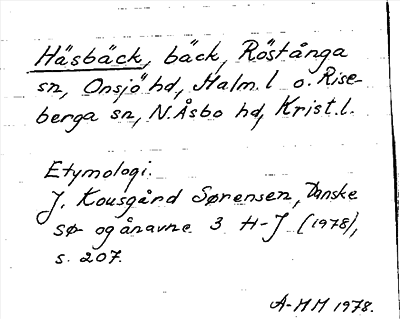 Häsbäck, bäck, Röstånga
sn, Onsjö hd, Malm. l o. Rise-
berga sn, N. Åsbo hd, Krist. l.
Etymologi.
J. Kousgård Sørensen, Danske
sø- og ånavne 3 H-J (1978),
s. 207.
A-MM 1978.